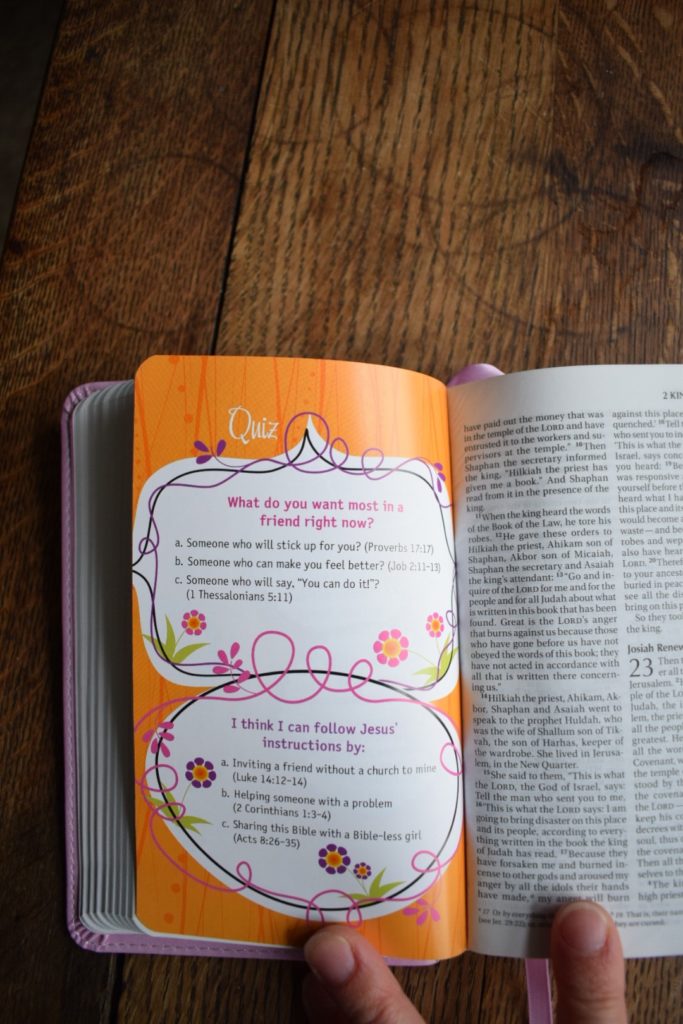 Quiz
What do you want most in a
friend right now?
a. Someone who will stick up for you? (Proverbs 17:17)
b. Someone who can make you feel better? (Job 2:11–13)
c. Someone who will say, "You can do it!"?
(1 Thessalonians 5:11)
I think I can follow Jesus'
instructions by:
a. Inviting a friend without a church to mine
(Luke 14:12–14)
b. Helping someone with a problem
(2 Corinthians 1:3–4)
c. Sharing this Bible with a Bible-less girl
(Acts 8:26–35)
have paid out the money that was
in the temple of the LORD and have
entrusted it to the workers and su-
pervisors at the temple." 10Then
Shaphan the secretary informed
the king, "Hilkiah the priest has
given me a book." And Shaphan
read from it in the presence of the
king.
11When the king heard the words
of the Book of the Law, he tore his
robes. 12He gave these orders to
Hilkiah the priest, Ahikam son of
Shaphan, Akbor son of Micaiah,
Shaphan the secretary and Asaiah
the king's attendant: 13"Go and in-
quire of the LORD for me and for the
people and for all Judah about what
is written in this book that has been
found. Great is the LORD's anger
that burns against us because those
who have gone before us have not
obeyed the words of this book; they
have not acted in accordance with
all that is written there concern-
ing us."
14Hilkiah the priest, Ahikam, Ak-
bor, Shaphan and Asaiah went to
speak to the prophet Huldah, who
was the wife of Shallum son of Tik-
vah, the son of Harhas, keeper of
the wardrobe. She lived in Jerusa-
lem, in the New Quarter.
15She said to them, "This is what
the LORD, the God of Israel, says:
Tell the man who sent you to me,
16'This is what the LORD says: I am
going to bring disaster on this place
and its people, according to every-
thing written in the book the king
of Judah has read. 17Because they
have forsaken me and burned in-
cense to other gods and aroused my
anger by all the idols their hands
have made,a my anger will burn
2 KIN
against this place
quenched.' 18Tell
who sent you to in
'This is what the
Israel, says conc
you heard: 19Be
was responsive
yourself before t
heard what I ha
this place and it
would become a
waste—and bec
robes and wep
also have hear
LORD. 20Theref
to your ancest
buried in peac
see all the dis
bring on this p
So they too
the king.
Josiah Renew
23 Then t
er all t
Jerusalem.
ple of the Lo
Judah, the i
lem, the prie
all the peopl
greatest. He
all the word
Covenant, w
the temple
stood by th
the covena
the LORD—
keep his co
decrees wit
soul, thus
the covena
Then all th
selves to th
4The kin
high pries
a 17 Or by everything
(see Jer. 29:22);
18 That is, their nar
they are cursed.